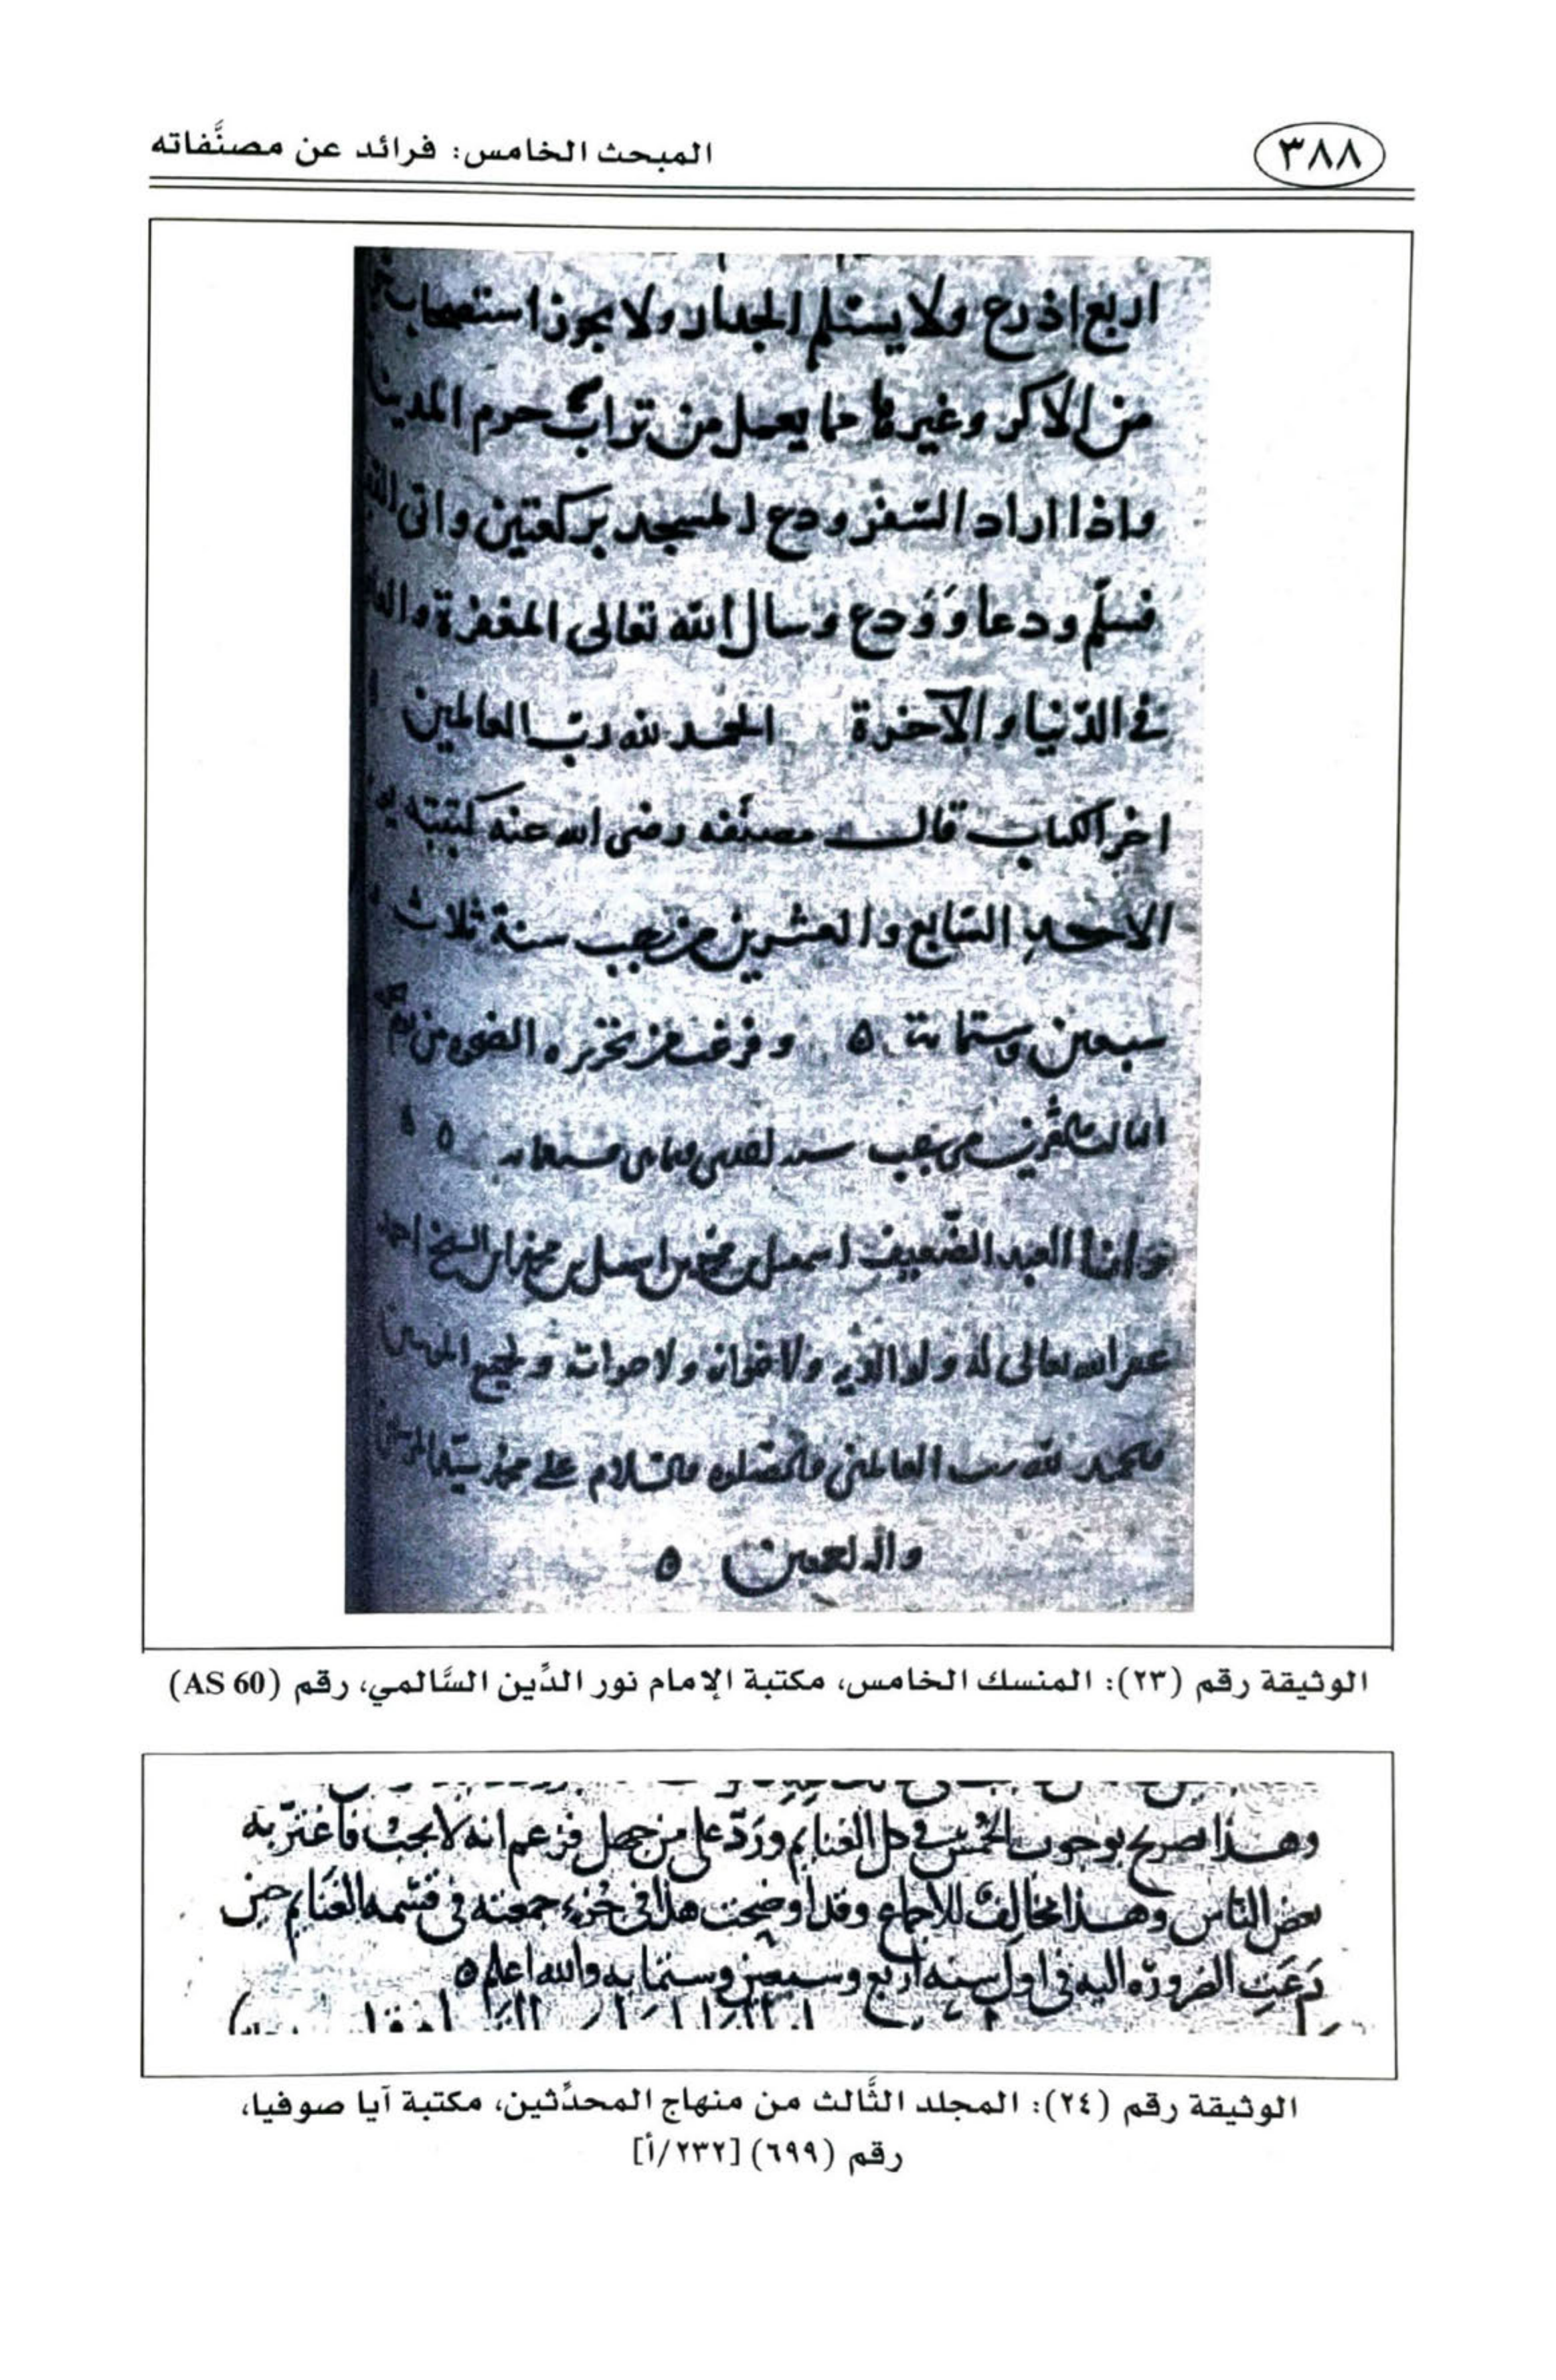 ٣٨٨
المبحث الخامس: فرائد عن مصنَّفاته
اربع اذرع ولا يستلم الجدار ولا يجوز استصحاب
من الاكر وغيرها مما يعمل من تراب حرم المدينة
واذا اراد السّفر ودع المسجد بركعتين واتى
فسلّم ودعا وَوَدع وسال الله تعالى المغفرة
في الدّنيا والآخرة الحمد لله ربّ العالمين
اخر الكتاب قال مصنّفه رضى الله عنه كتبته
الاحد السّابع والعشرين من رجب سنة ثلاث
سبعين وستمائة ٥ وفرغت من تحريره الضحوه من
من رجب سنه ٥
وانا العبد الضّعيف اسمعيل بن محمد بن اسمعيل بن محمد بن الشيخ احمد
غفر الله تعالى له ولوالديه ولاخوانه ولاخواته ولجميع
والحمد لله رب العالمين والصّلوه والسّلام على محمد سيّد
واله اجمعين ٥
الوثيقة رقم (٢٣): المنسك الخامس، مكتبة الإمام نور الدِّين السَّالمي، رقم (AS 60)
وهذا تصريح بوجوب الخُمُس في كل الغنايم وَرَدّ على من جهل فزعم انه لا يجب فاغترّ به
بعض الناس وهذا مخالف للاجماع وقد اوضحت هذا في جُزء جمعته في قسمه الغنايم حين
دَعَت الضروره اليه في اول سنه اربع وسبعين وستمايه والله اعلم ٥
الوثيقة رقم (٢٤): المجلد الثَّالث من منهاج المحدِّثين، مكتبة آيا صوفيا،
رقم (٦٩٩) [٢٣٢/أ]